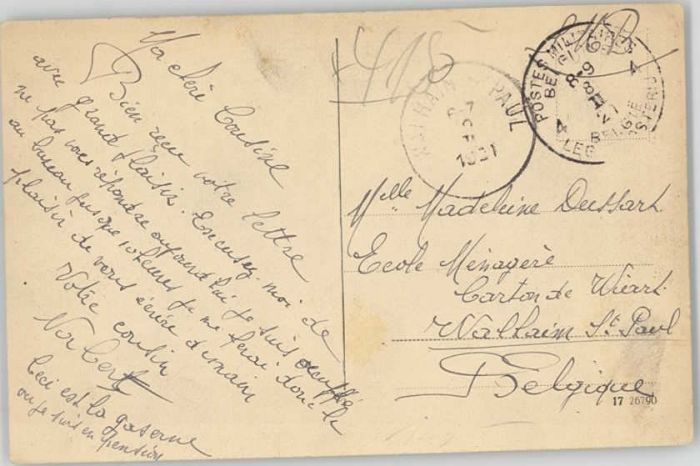 Ma chère Cousine
Bien reçu votre lettre
avec grand plaisir. Excusez moi de
ne pas vous répondre aujourd'hui je suis occupé
au bureau jusque 10 heures je me ferai donc le
plaisir de vous écrire demain
Votre cousin
Norbert
Ceci est la caserne
ou je suis en pension
418
S.M.
POSTES MILITAIRES
BELGIQUE
4
8-9
BELGIE
LEGERPOSTERIJ
4
ST PAUL
1931
Melle Madeleine Dussart
Ecole Ménagère
Carton de Wiart
Walhain St Paul
Belgique
17 26790